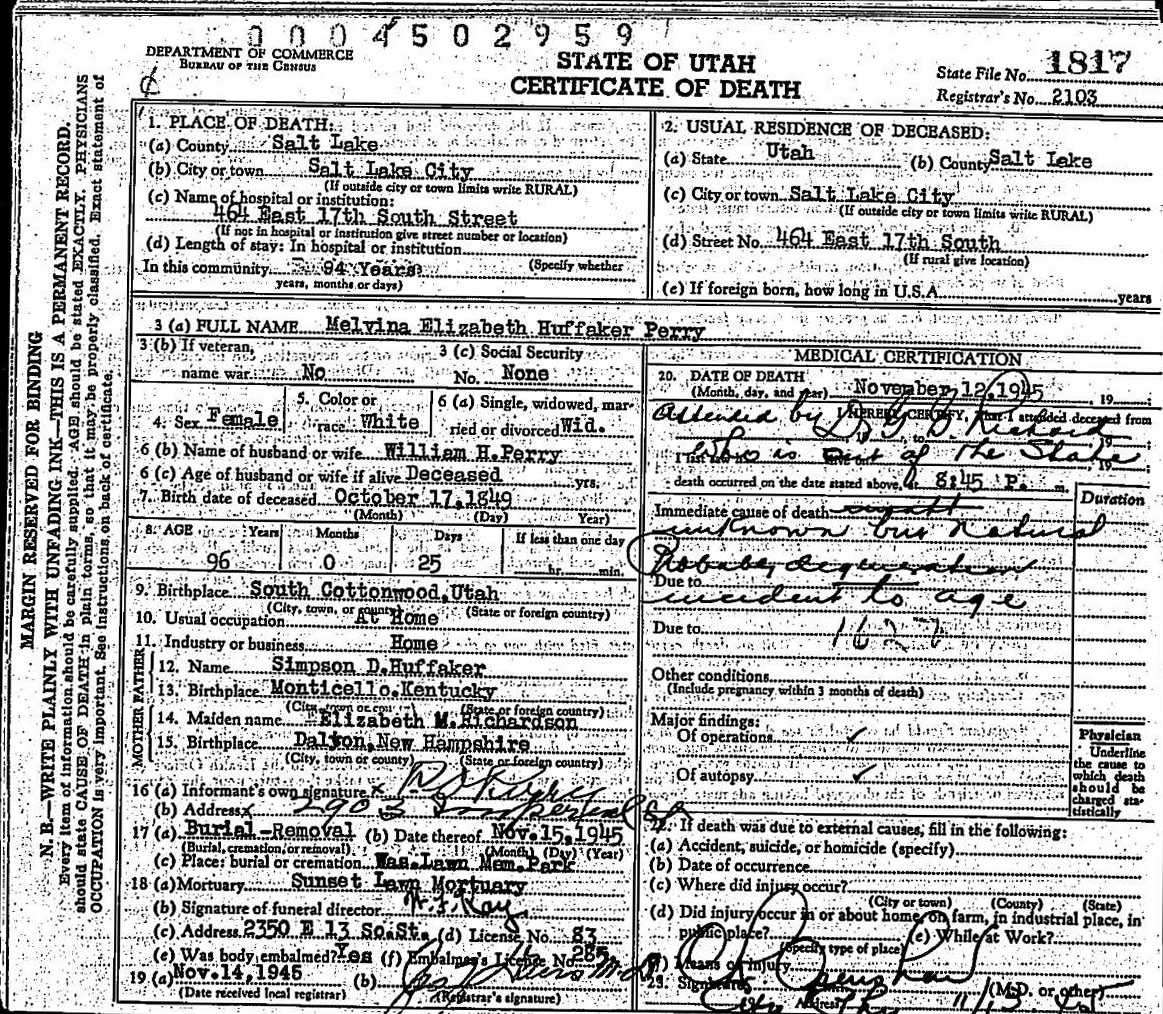 0004502959
DEPARTMENT OF COMMERCE
BUREAU OF THE CENSUS
STATE OF UTAH
CERTIFICATE OF DEATH
State File No. 1817
Registrar's No. 2103
MARGIN RESERVED FOR BINDING
N. B.—WRITE PLAINLY WITH UNFADING INK—THIS IS A PERMANENT RECORD.
Every item of information should be carefully supplied. AGE should be stated EXACTLY. PHYSICIANS
should state CAUSE OF DEATH in plain terms, so that it may be properly classified. Exact statement of
OCCUPATION is very important. See instructions on back of certificate.
1. PLACE OF DEATH:
(a) County Salt Lake
(b) City or town Salt Lake City
(If outside city or town limits write RURAL)
(c) Name of hospital or institution:
464 East 17th South Street
(If not in hospital or institution give street number or location)
(d) Length of stay: In hospital or institution
(Specify whether
In this community 94 Years
years, months or days)
2. USUAL RESIDENCE OF DECEASED:
(a) State Utah (b) County Salt Lake
(c) City or town Salt Lake City
(If outside city or town limits write RURAL)
(d) Street No. 464 East 17th South
(If rural give location)
(e) If foreign born, how long in U.S.A. years
3 (a) FULL NAME Melvina Elizabeth Huffaker Perry
3 (b) If veteran, name war No
3 (c) Social Security No. None
4. Sex Female
5. Color or race White
6 (a) Single, widowed, married or divorced Wid.
6 (b) Name of husband or wife William H.Perry
6 (c) Age of husband or wife if alive Deceased yrs.
7. Birth date of deceased October 17,1849
(Month) (Day) Year)
8. AGE Years Months Days If less than one day
96 0 25 hr. min.
9. Birthplace South Cottonwood,Utah
(City, town, or county) (State or foreign country)
10. Usual occupation At Home
11. Industry or business Home
FATHER
12. Name Simpson D.Huffaker
13. Birthplace Monticello,Kentucky
(City, town or county) (State or foreign country)
MOTHER
14. Maiden name Elizabeth M.Richardson
15. Birthplace Dalton,New Hampshire
(City, town or county) (State or foreign country)
16 (a) Informant's own signature x
(b) Address x 2903 Imperial St
17 (a) Burial-Removal (b) Date thereof Nov.15,1945
(Burial, cremation, or removal) (Month) (Day) (Year)
(c) Place: burial or cremation Was.Lawn Mem.Park
18 (a) Mortuary Sunset Lawn Mortuary
(b) Signature of funeral director
(c) Address 2350 E 13 So.St. (d) License No. 83
(e) Was body embalmed? Yes (f) Embalmer's License No. 285
19 (a) Nov.14,1945 (b)
(Date received local registrar) (Registrar's signature)
MEDICAL CERTIFICATION
20. DATE OF DEATH
(Month, day, and year) November 12,1945 , 19
I HEREBY CERTIFY, that I attended deceased from
Attended by Dr G D
Who is out of the State
death occurred on the date stated above, at 8:45 P. m.
Duration
Immediate cause of death
unknown but Natural
Probably degeneration
Due to
incident to age
Due to
Other conditions
(Include pregnancy within 3 months of death)
Major findings:
Of operations ✓
Of autopsy ✓
Physician
Underline
the cause to
which death
should be
charged sta-
tistically
22. If death was due to external causes, fill in the following:
(a) Accident, suicide, or homicide (specify)
(b) Date of occurrence
(c) Where did injury occur?
(City or town) (County) (State)
(d) Did injury occur in or about home, on farm, in industrial place, in
public place? (e) While at Work?
(Specify type of place)
(f) Means of injury
23. Signature (M.D. or other)
Address